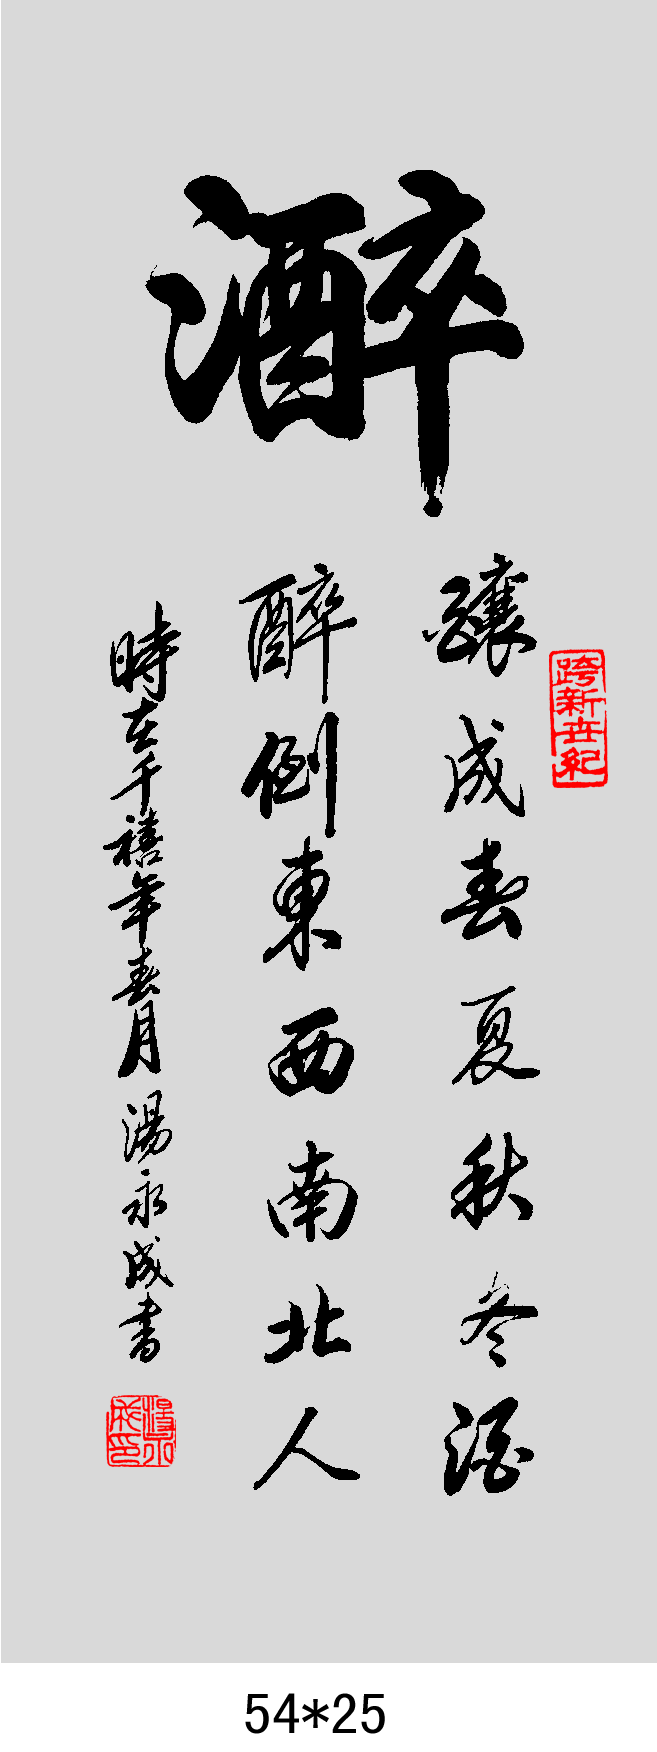 酒醉
跨新世紀
釀成春夏秋冬酒
醉倒東西南北人
時在千禧年春月湯永成書
湯永成印
54*25